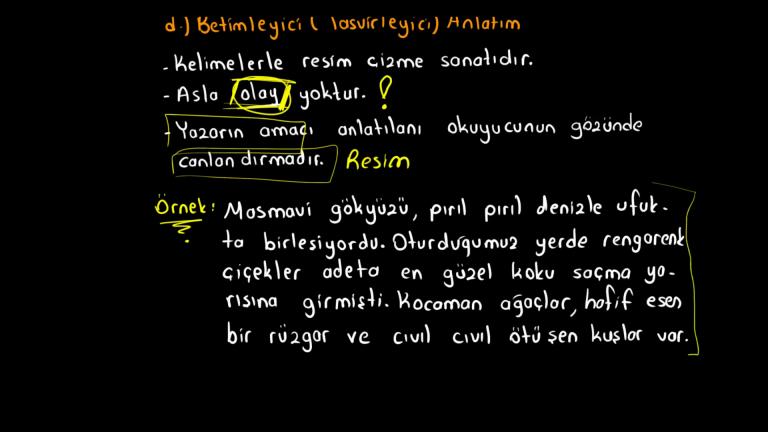 d.) Betimleyici ( Tasvirleyici) Anlatım
- Kelimelerle resim çizme sanatıdır.
- Asla olay yoktur. !
- Yazarın amacı anlatılanı okuyucunun gözünde
canlandırmadır. Resim
Örnek: Masmavi gökyüzü, pırıl pırıl denizle ufuk-
ta birleşiyordu. Oturduğumuz yerde rengarenk
çiçekler adeta en güzel koku saçma ya-
rışına girmişti. Kocaman ağaçlar, hafif esen
bir rüzgar ve cıvıl cıvıl ötüşen kuşlar var.